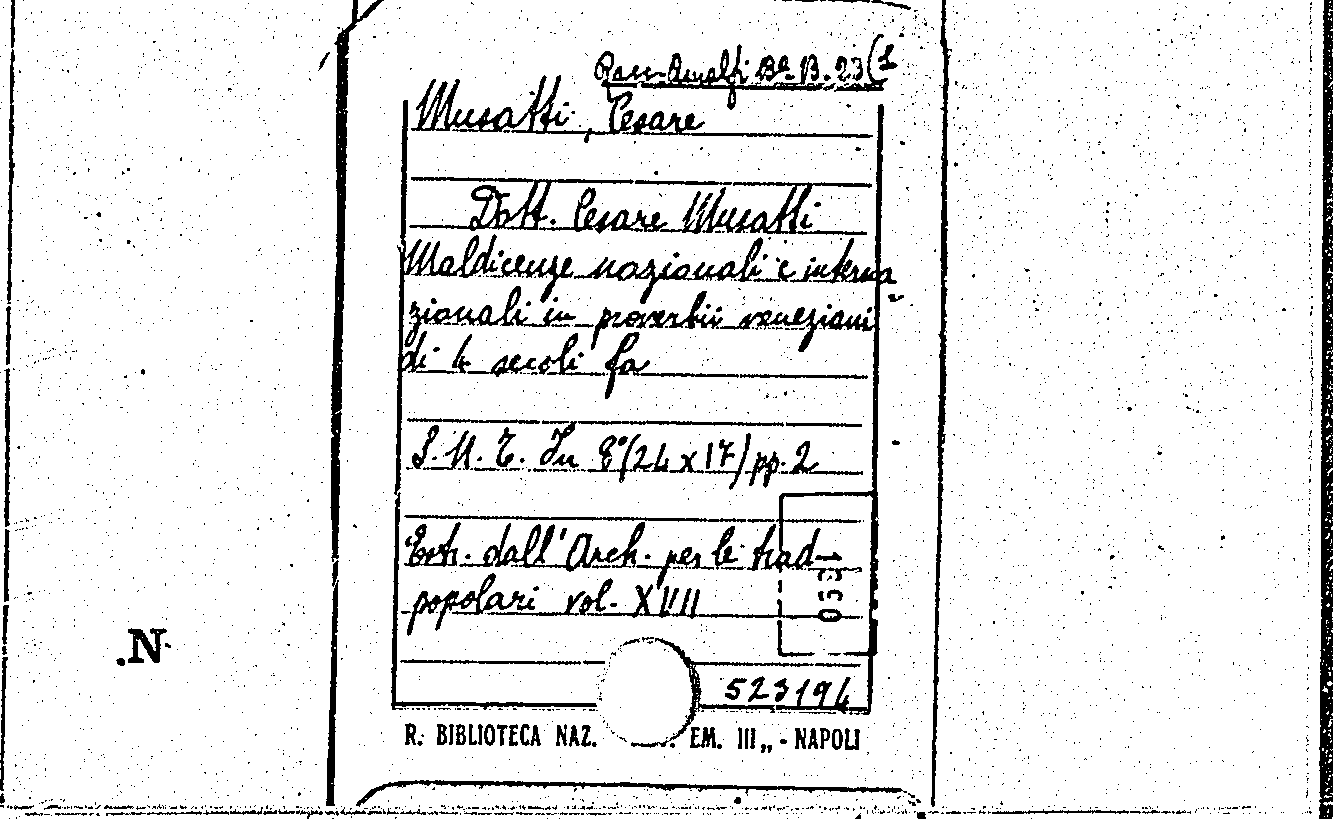 Racc. Amalfi Bª. B. 23(1
Musatti, Cesare
Dott. Cesare Musatti
Maldicenze nazionali e interna-
zionali in proverbii veneziani
di 4 secoli fa
S. N. T. In 8º(24 x 17) pp. 2
Estr. dall' Arch. per le trad.
popolari vol. XVIII
0531
523194
R. BIBLIOTECA NAZ. EM. III„ - NAPOLI
.N.